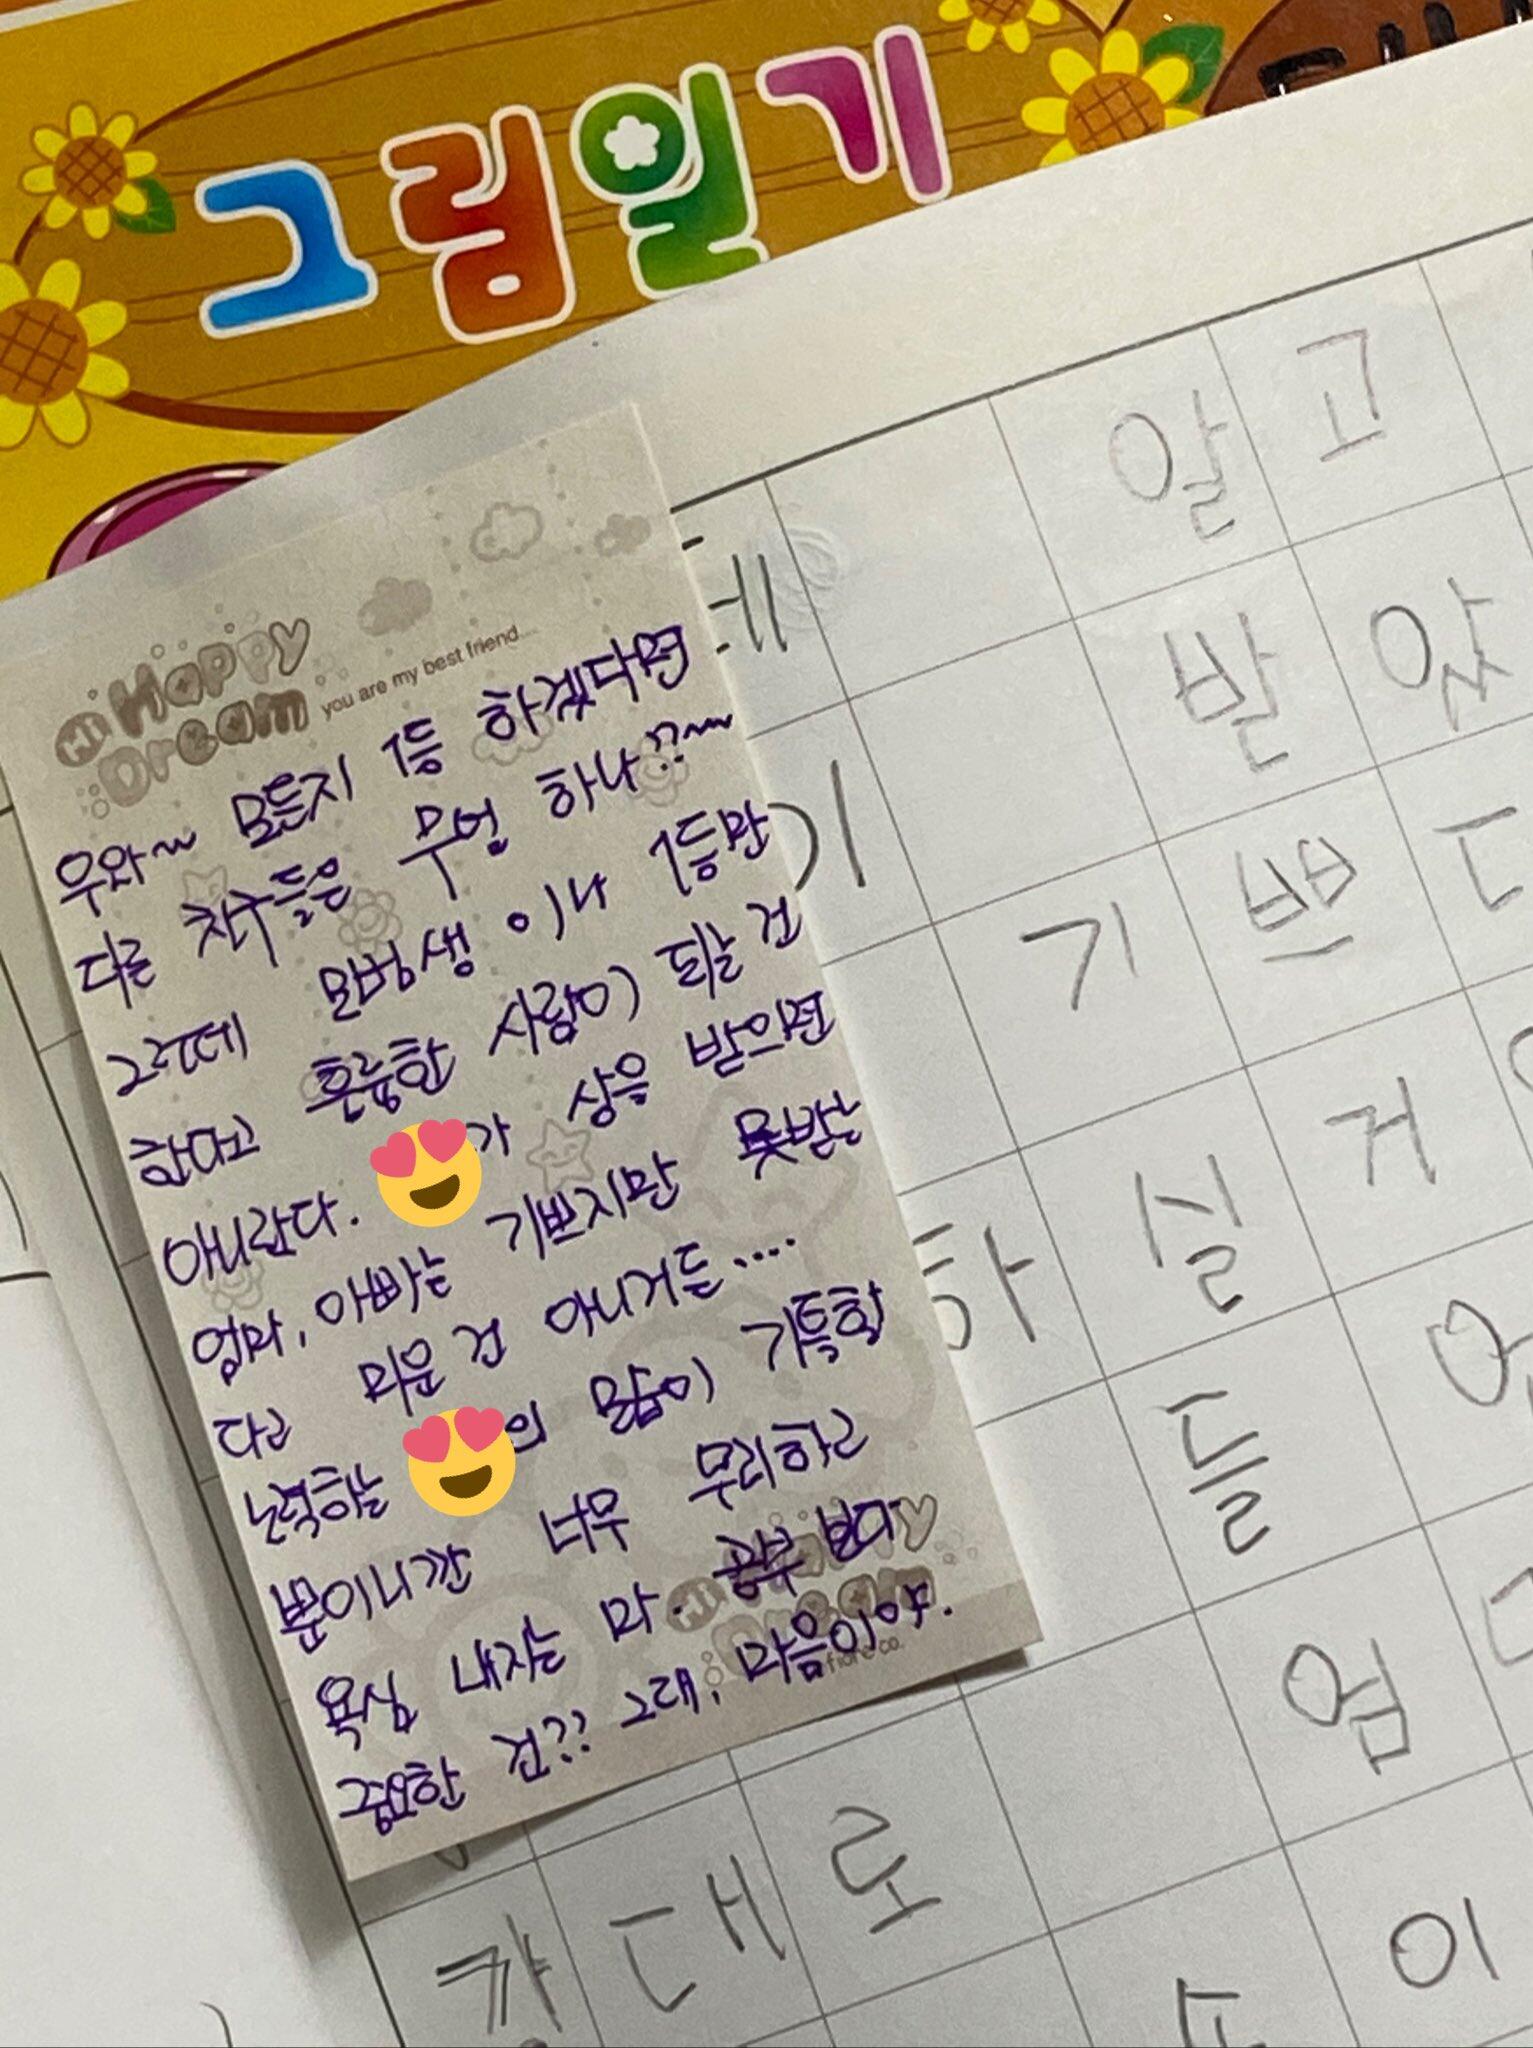 그림일기
Hi Happy
Dream
you are my best friend....
우와~ 모든지 1등 하겠다면
다른 친구들은 무얼 하나??~
그런데 모범생이나 1등만
한다고 훌륭한 사람이 되는 건
아니란다. 가 상을 받으면
엄마, 아빠는 기쁘지만 못받는
다고 미운 건 아니거든....
노력하는 의 모습이 기특할
뿐이니깐 너무 무리하고
욕심 내지는 마. 공부 보다
중요한 건?? 그래, 마음이야.
알 고
받 았
기 쁘 다
실 거
들
엄
대 로
이